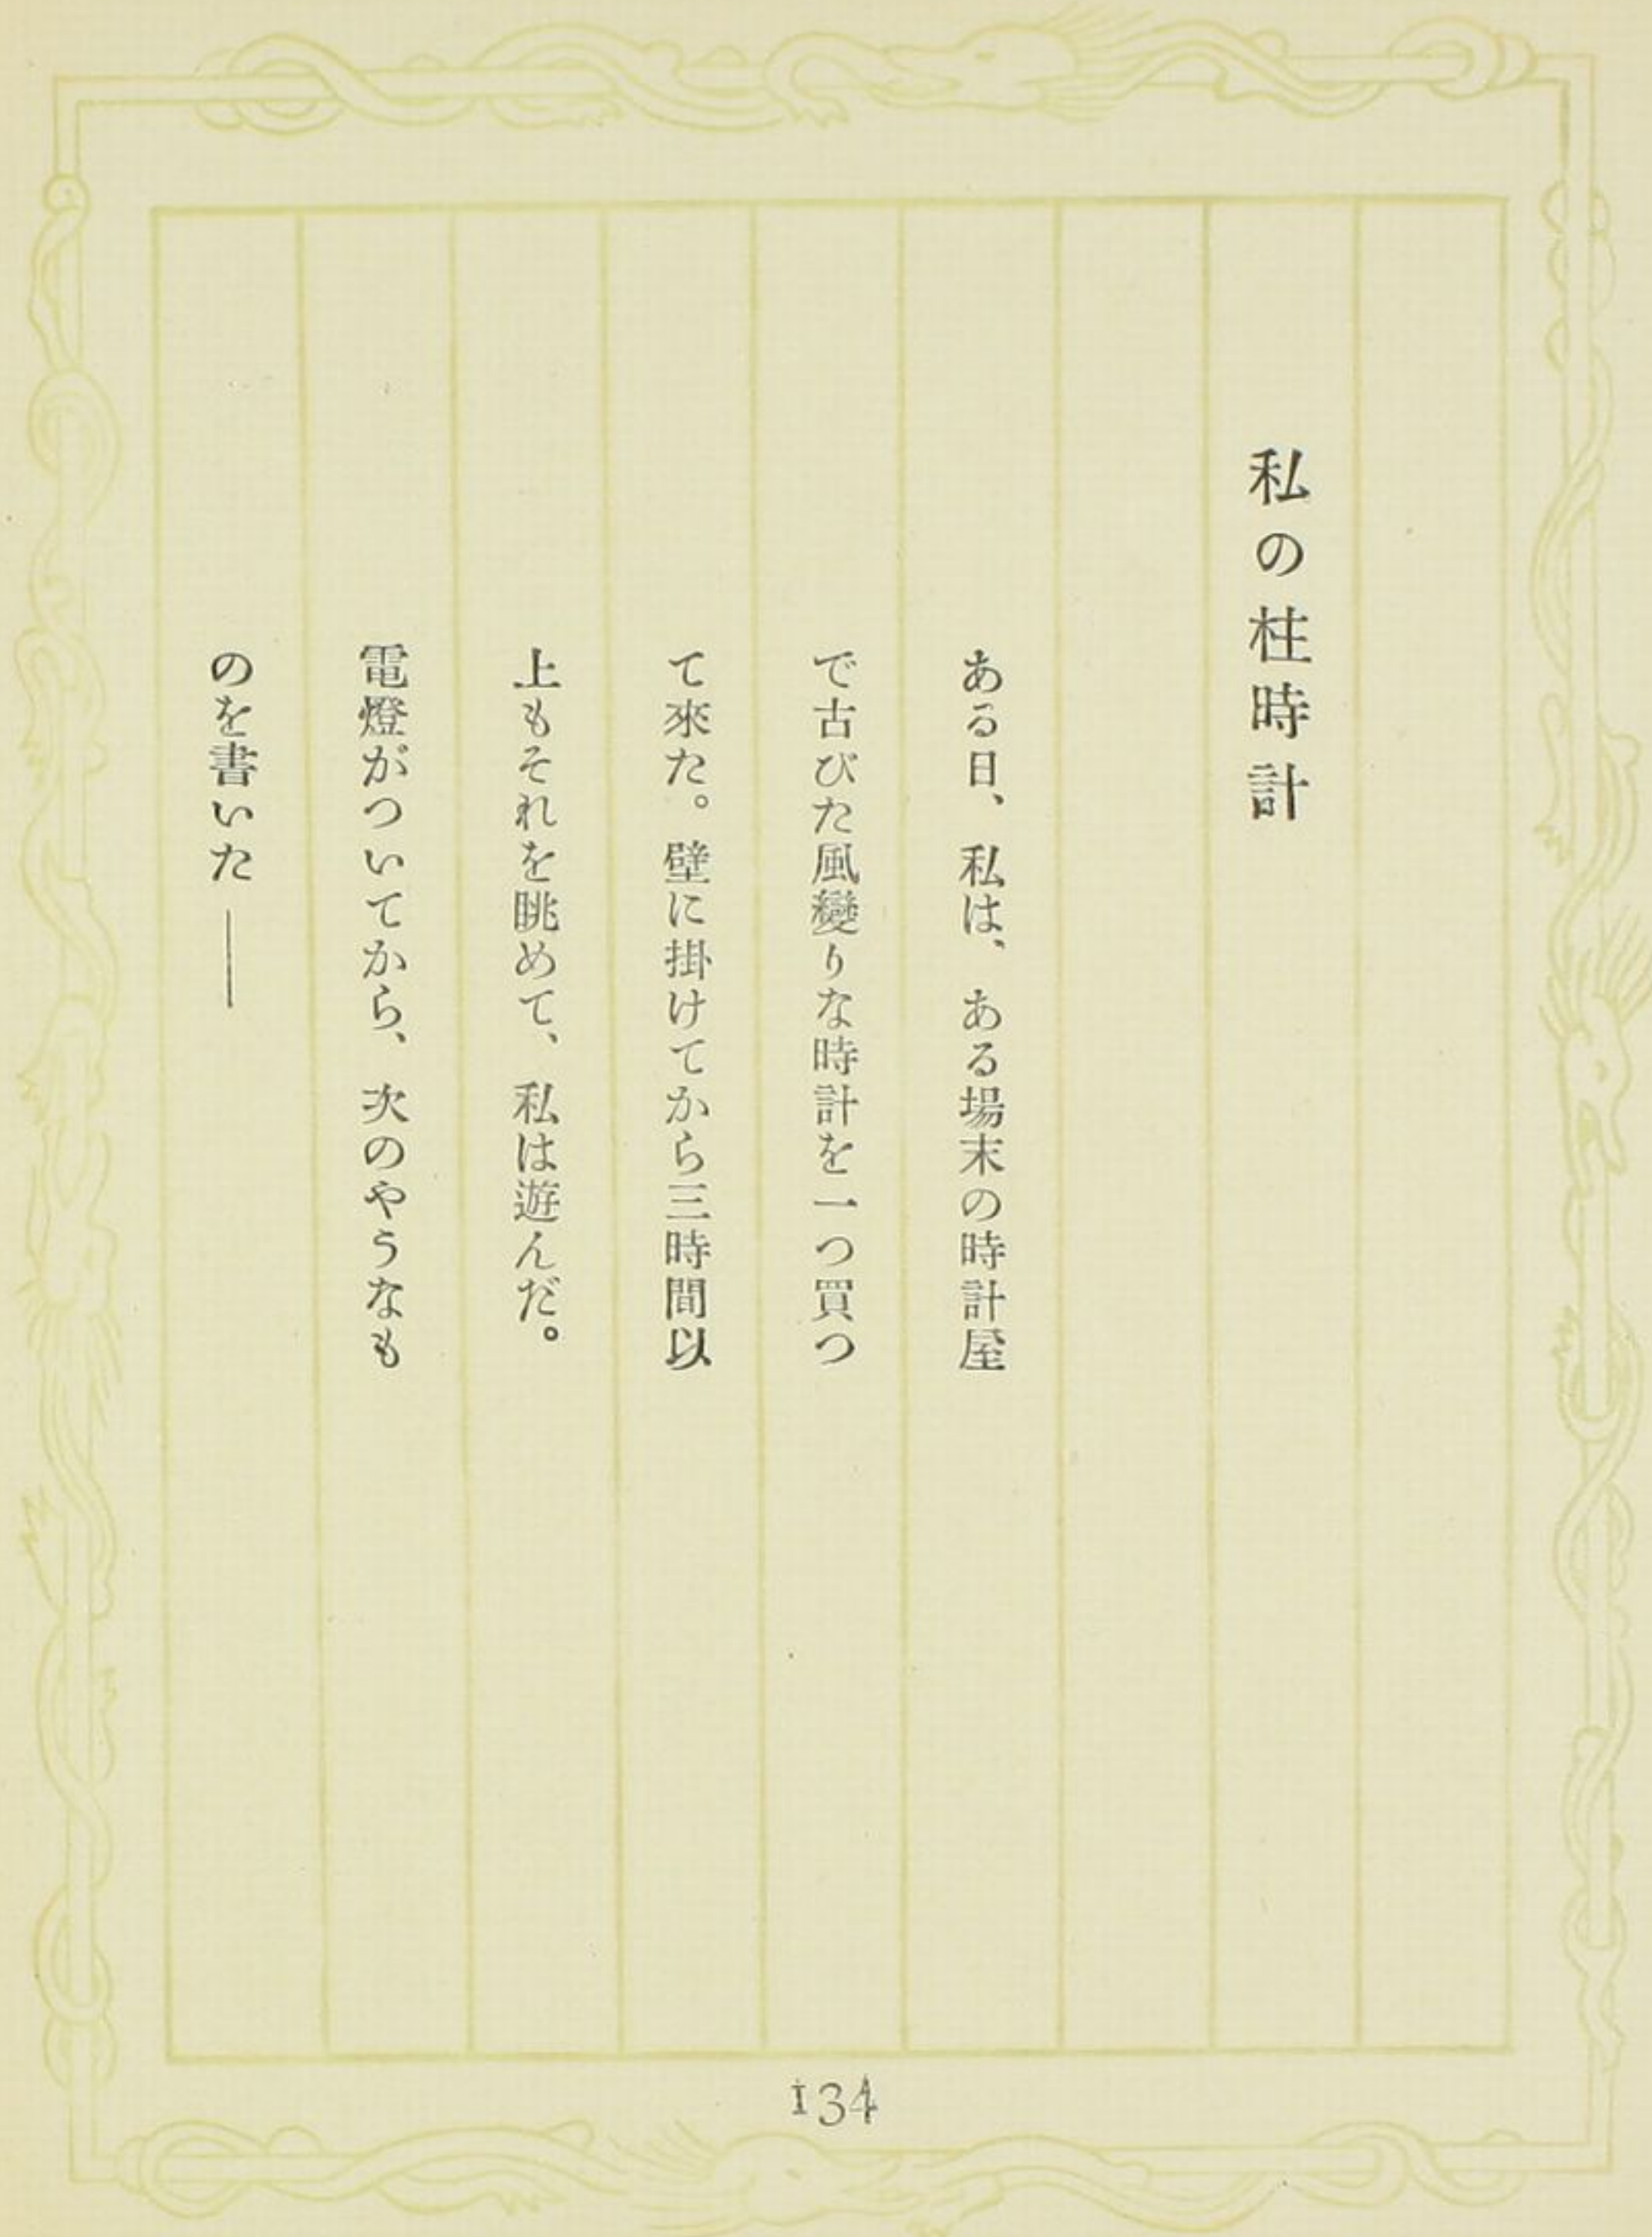 私の柱時計
ある日、私は、ある場末の時計屋
で古びた風變りな時計を一つ買つ
て來た。壁に掛けてから三時間以
上もそれを眺めて、私は遊んだ。
電燈がついてから、次のやうなも
のを書いた――
134